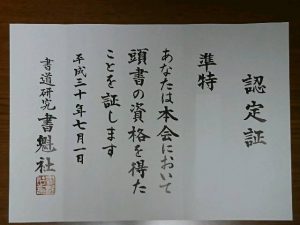 認定証
準特
あなたは本会において
頭書の資格を得た
ことを証します
平成三十年七月一日
書道研究 書魁社